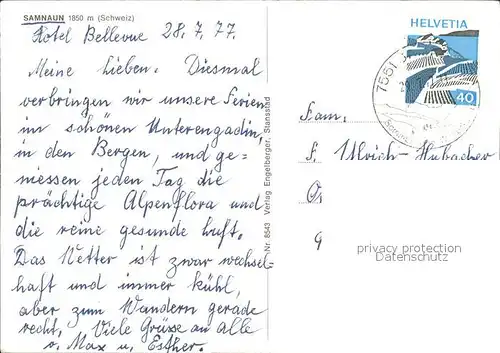 SAMNAUN 1850 m (Schweiz)
Hotel Bellevue 28.7.77.
Meine Lieben. Diesmal
verbringen wir unsere Ferien
im schönen Unterengadin,
in den Bergen, und ge-
niessen jeden Tag die
prächtige Alpenflora und
die reine gesunde Luft.
Das Wetter ist zwar wechsel-
haft und immer kühl,
aber zum Wandern gerade
recht. Viele Grüsse an alle
v. Max u. Esther.
Nr. 8543 Verlag Engelberger, Stansstad
HELVETIA
40
7551
Fam.
F. Ulrich-Hubacher
privacy protection
Datenschutz